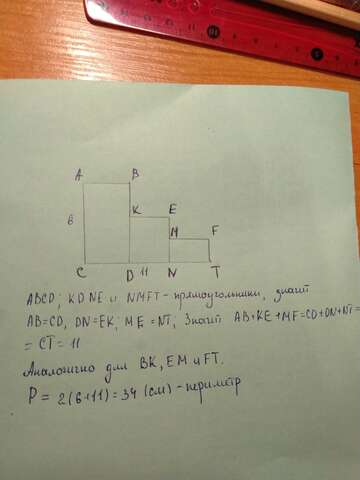 A B
K E
M F
6
C D 11 N T
ABCD; KDNE и NMFT - прямоугольники, значит
AB=CD, DN=EK; ME=NT; Значит AB+KE+MF=CD+DN+NT=
= CT = 11
Аналогично для BK, EM и FT.
P = 2(6+11) = 34 (см) - периметр